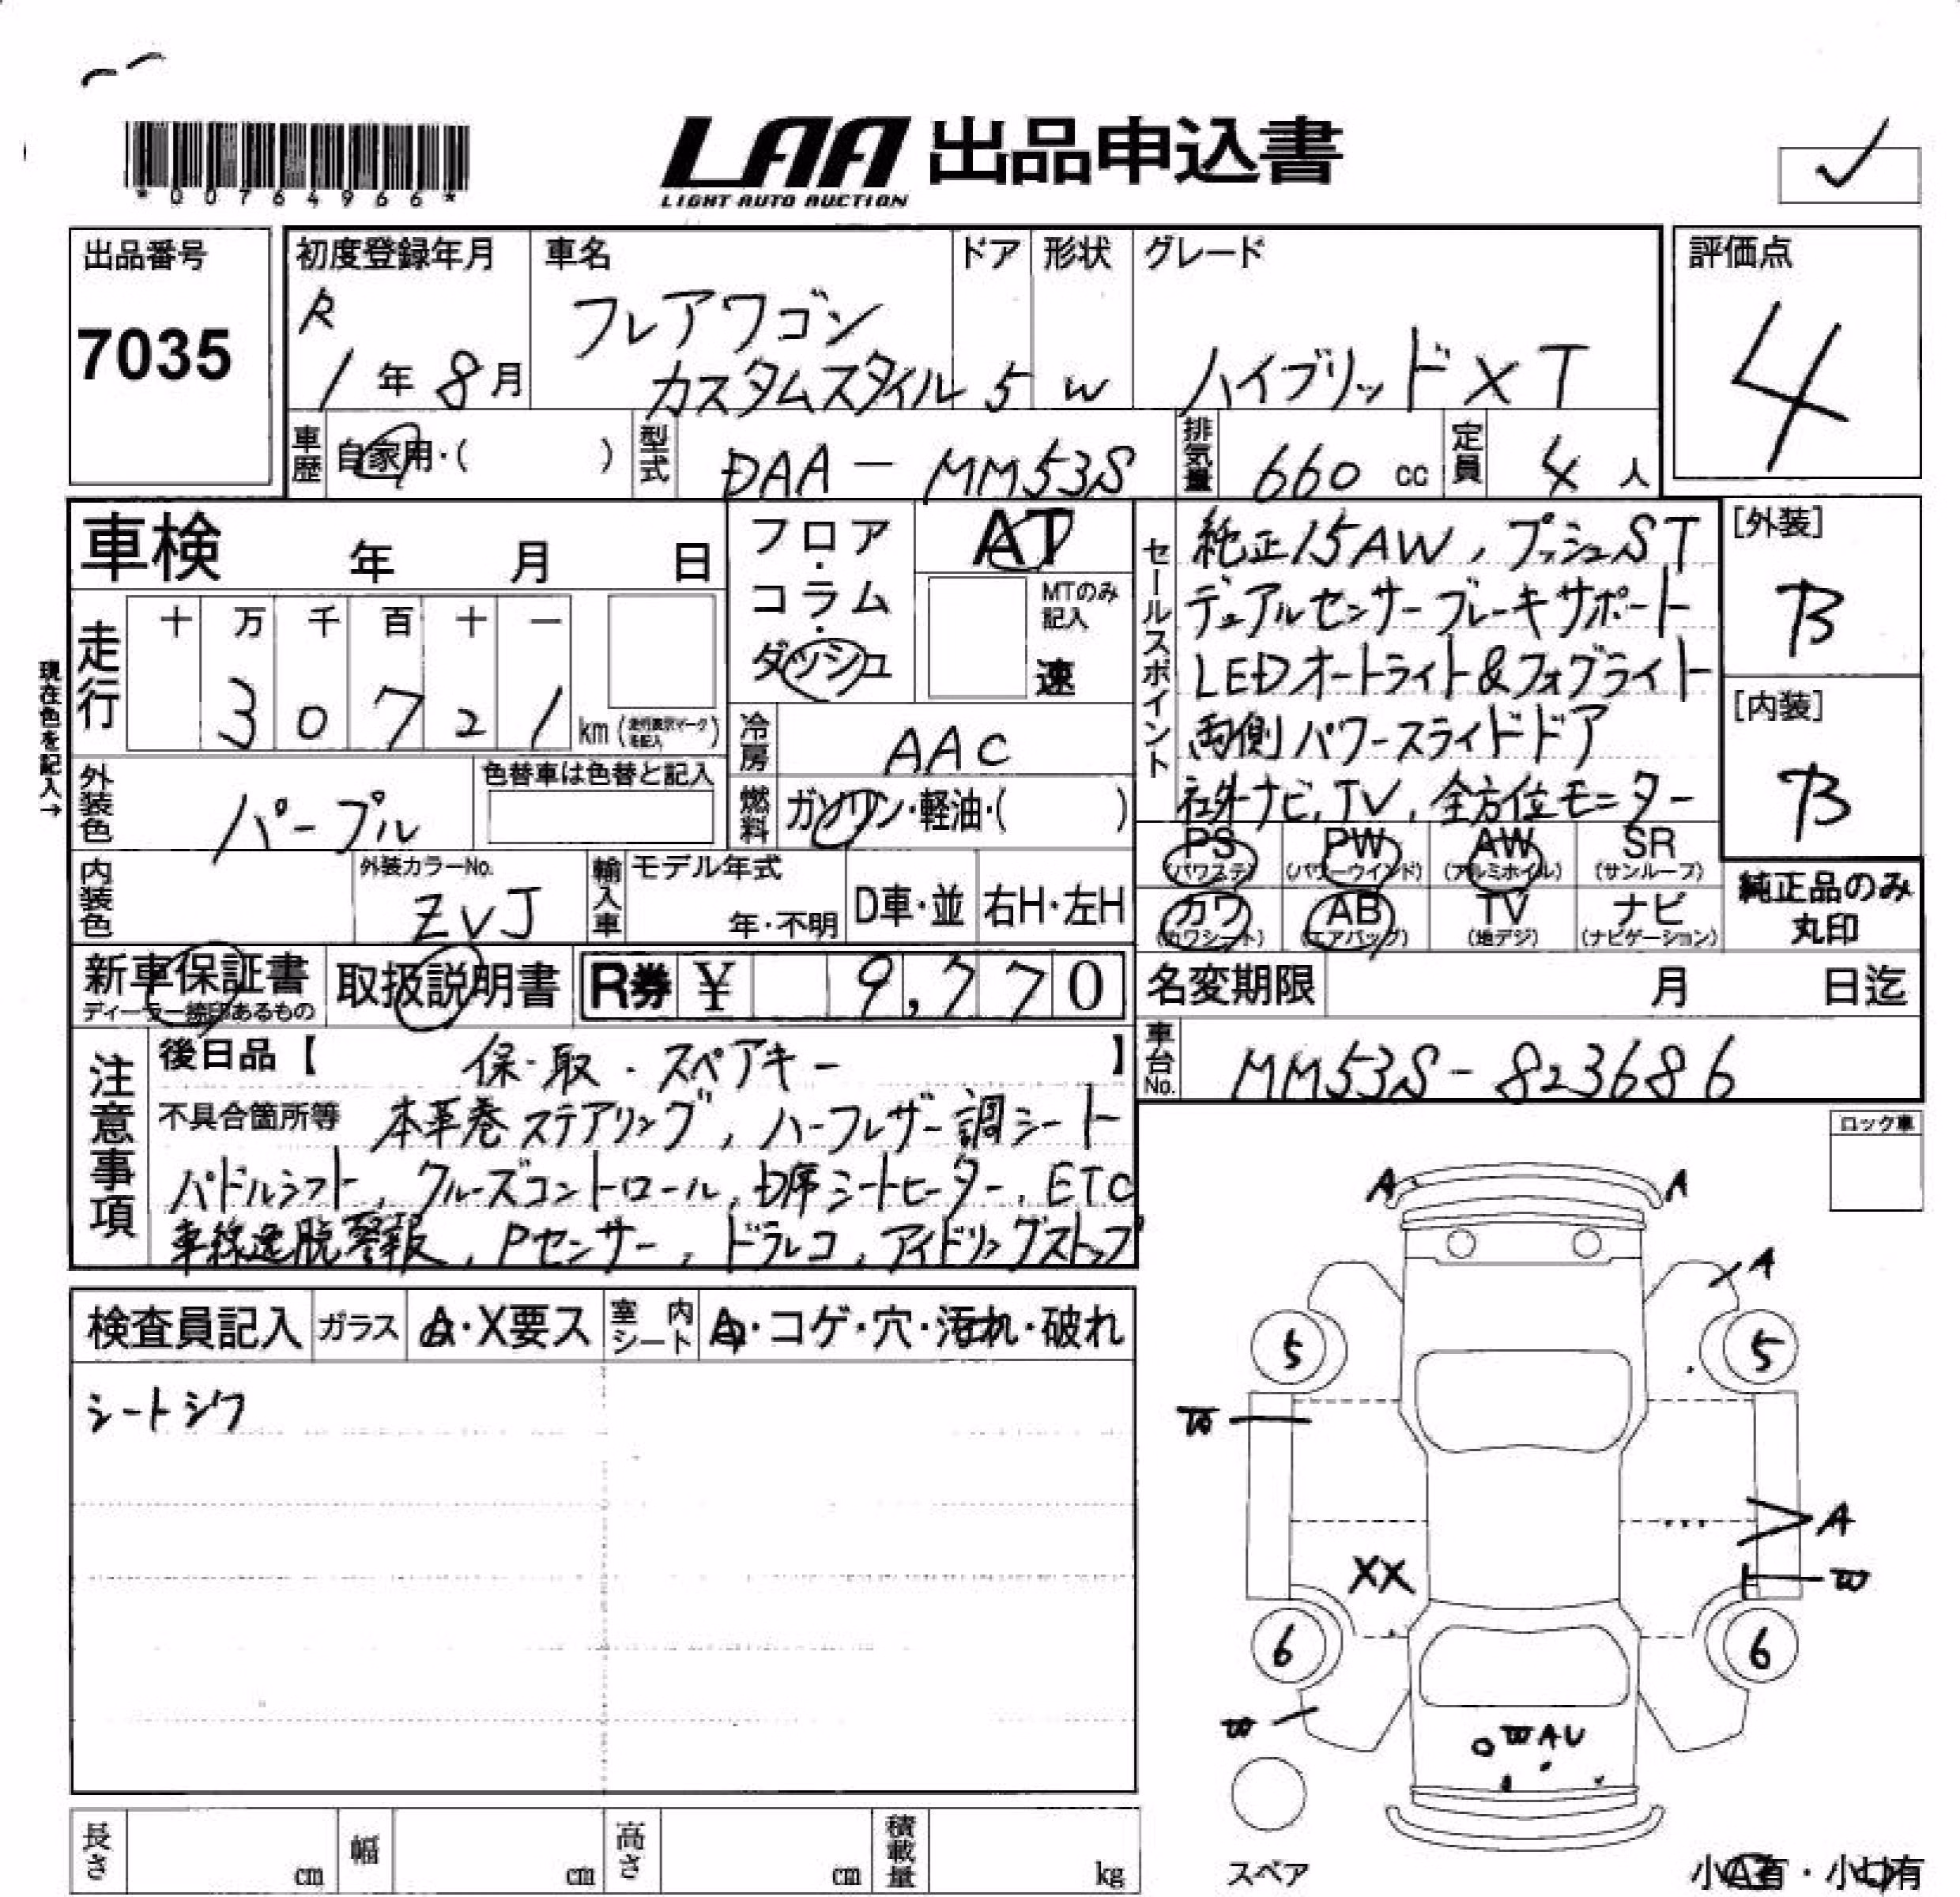 *00764966*
LAA 出品申込書
LIGHT AUTO AUCTION
出品番号
7035
初度登録年月
R
1年 8月
車名
フレアワゴン
カスタムスタイル
ドア
5
形状
W
グレード
ハイブリッドXT
評価点
4
車歴
自家用・( )
型式
DAA-MM53S
排気量
660 cc
定員
4 人
車検 年 月 日
フロア・コラム・ダッシュ
AT
MTのみ記入
速
現在色を記入→
走行
十 万 千 百 十 一
3 0 7 2 1 km (走行表示マークを記入)
外装色
パープル
色替車は色替と記入
冷房
AAC
燃料
ガソリン・軽油・( )
内装色
外装カラーNo.
ZVJ
輸入車
モデル年式
年・不明
D車・並
右H・左H
セールスポイント
純正15AW, プッシュST
デュアルセンサーブレーキサポート
LEDオートライト&フォグライト
両側パワースライドドア
社外ナビ, TV, 全方位モニター
[外装]
B
[内装]
B
PS (パワステ)
PW (パワーウインド)
AW (アルミホイル)
SR (サンルーフ)
カワ (カワシート)
AB (エアバッグ)
TV (地デジ)
ナビ (ナビゲーション)
純正品のみ
丸印
新車保証書
ディーラー捺印あるもの
取扱説明書
R券 ¥ 9,770
名変期限 月 日迄
注意事項
後日品【 保・取・スペアキー 】
不具合箇所等 本革巻ステアリング, ハーフレザー調シート
パドルシフト, クルーズコントロール, D席シートヒーター, ETC
車線逸脱警報, Pセンサー, ドラレコ, アイドリングストップ
車台No.
MM53S-823686
ロック車
検査員記入
ガラス
A・X要ス
室内シート
A・コゲ・穴・汚れ・破れ
シートシワ
A A
A
5 5
W
A
XX
W
6 6
W
W A U
スペア
長さ cm
幅 cm
高さ cm
積載量 kg
小A有・小U有